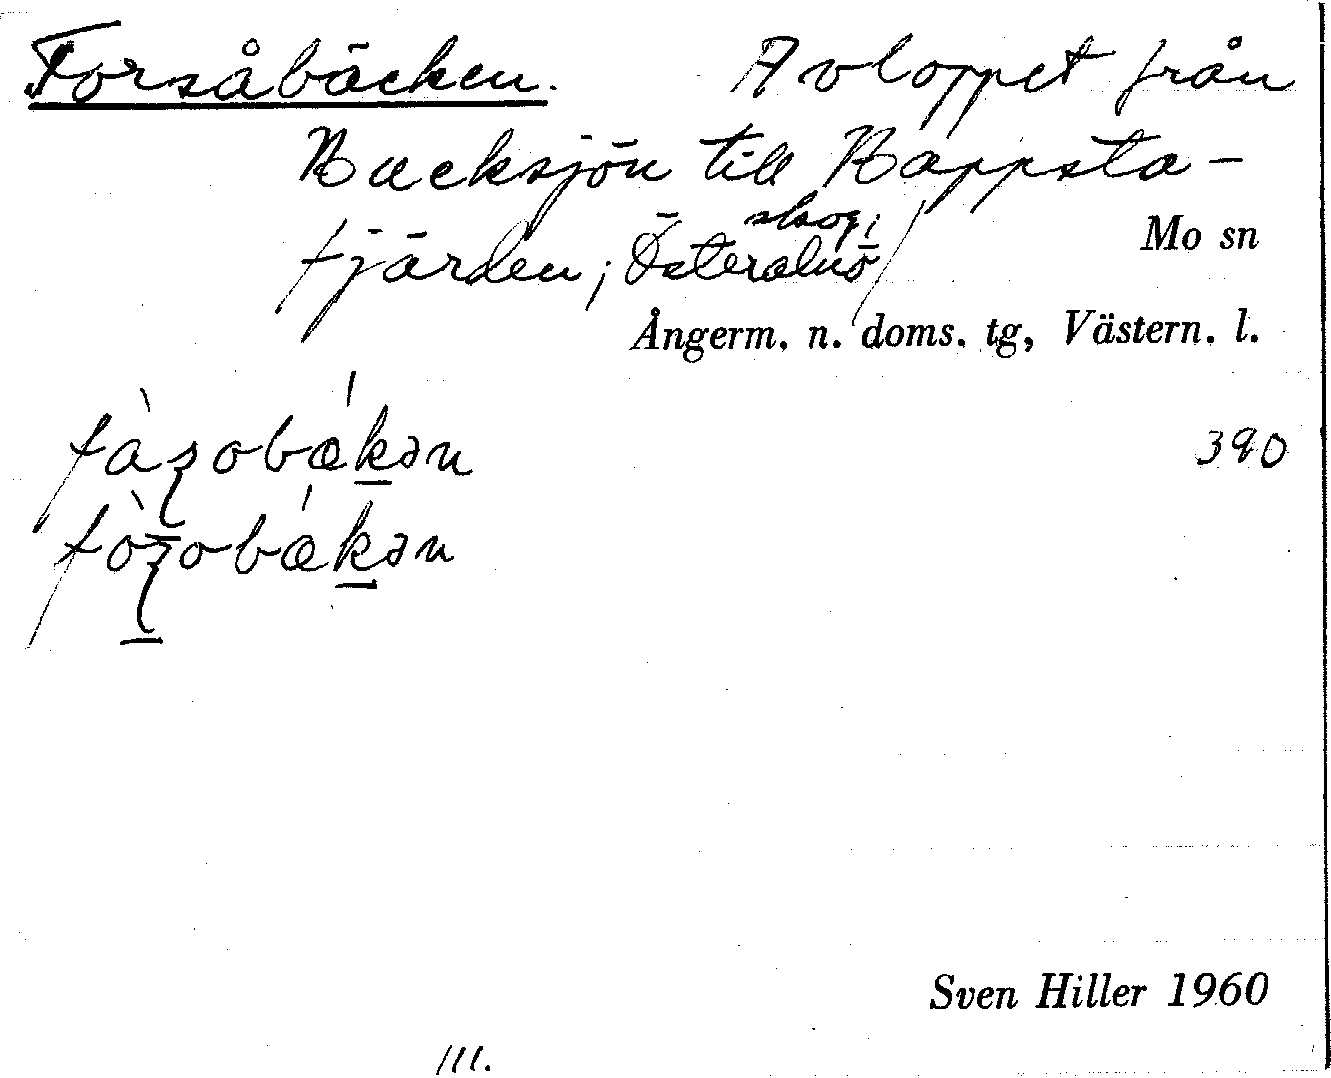 Forsåbäcken. Avloppet från
Backsjön till Happsta-
fjärden; Österalnö
skogi
Mo sn
Ångerm. n. doms. tg, Västern. l.
fàʂobǽkən
390
fòʂobǽkən
Sven Hiller 1960
III.